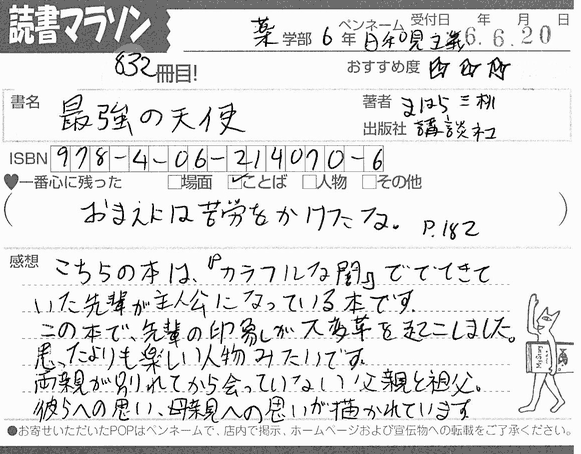 読書マラソン
832冊目!
薬学部 6年 ペンネーム 日和見主義 受付日 年 月 日
6.6.20
おすすめ度 ☆☆☆
書名 最強の天使
著者 まはら三桃
出版社 講談社
ISBN 978-4-06-214070-6
♥一番心に残った □場面 ☑ことば □人物 □その他
(おまえには苦労をかけたな。 P.182)
感想 こちらの本は、『カラフルな闇』ででてきて
いた先輩が主人公になっている本です。
この本で、先輩の印象が大変革を起こしました。
思ったよりも楽しい人物みたいです。
両親が別れてから会っていない父親と祖父。
彼らへの思い、母親への思いが描かれています
●お寄せいただいたPOPはペンネームで、店内で掲示、ホームページおよび宣伝物への転載をご了承ください。